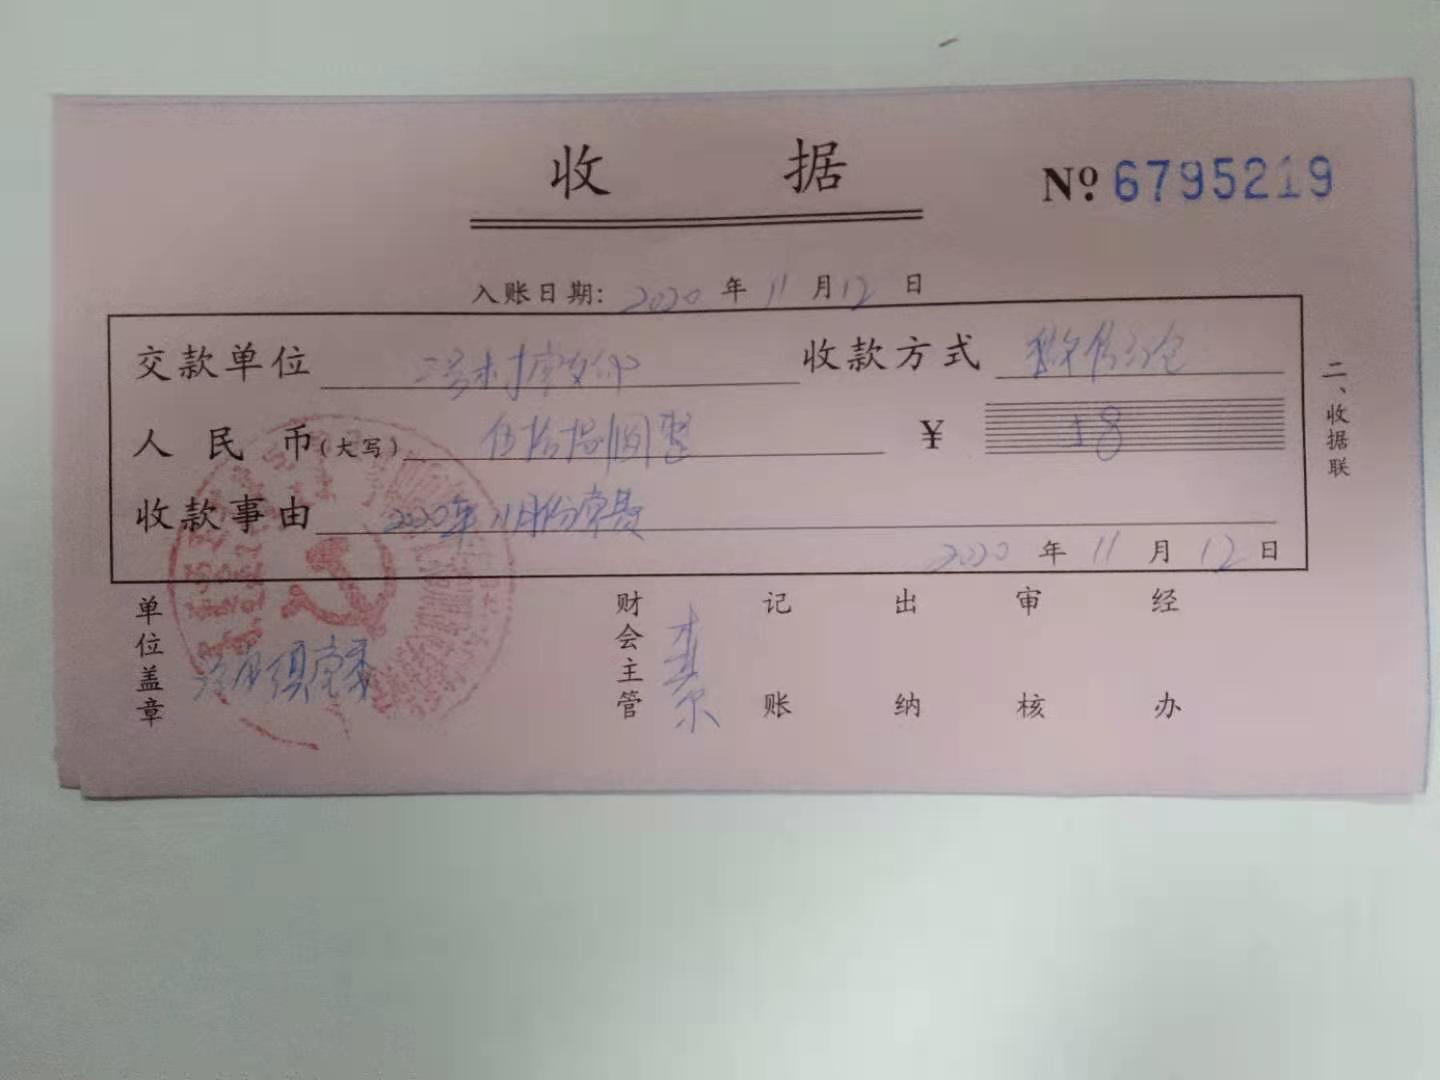 收 据
Nº 6795219
入账日期: 2020 年 11 月 12 日
交款单位 二号村党支部 收款方式
人民币(大写) 伍拾捌圆整 ¥ 58
收款事由 2020年11月份党费
2020 年 11 月 12 日
二、收据联
单位盖章
财会主管
记账
出纳
审核
经办